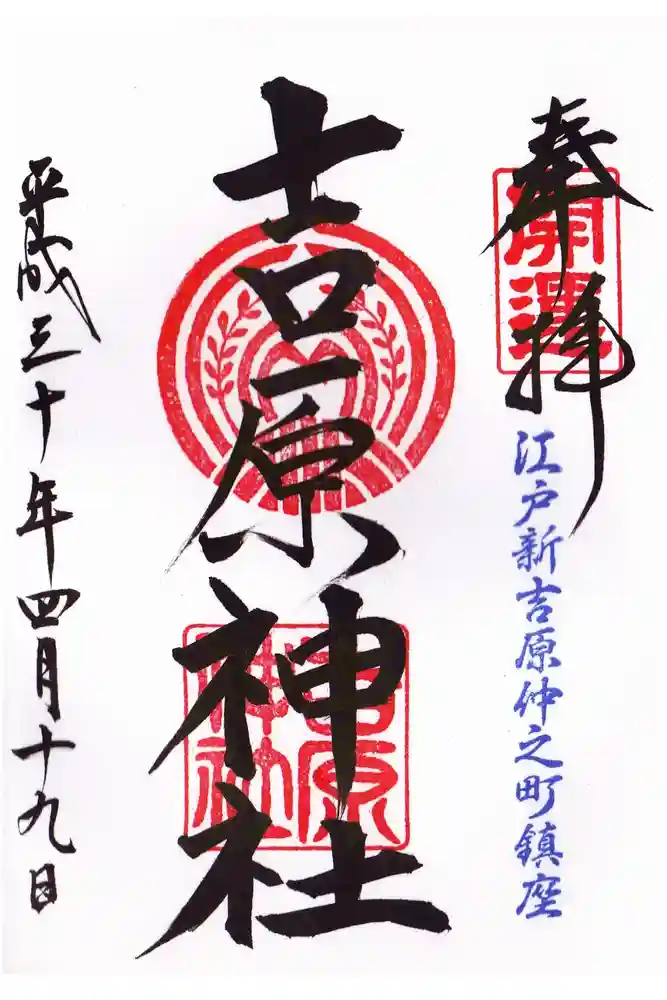 奉拝
江戸新吉原仲之町鎮座
吉原神社
吉原神社
平成三十年四月十九日